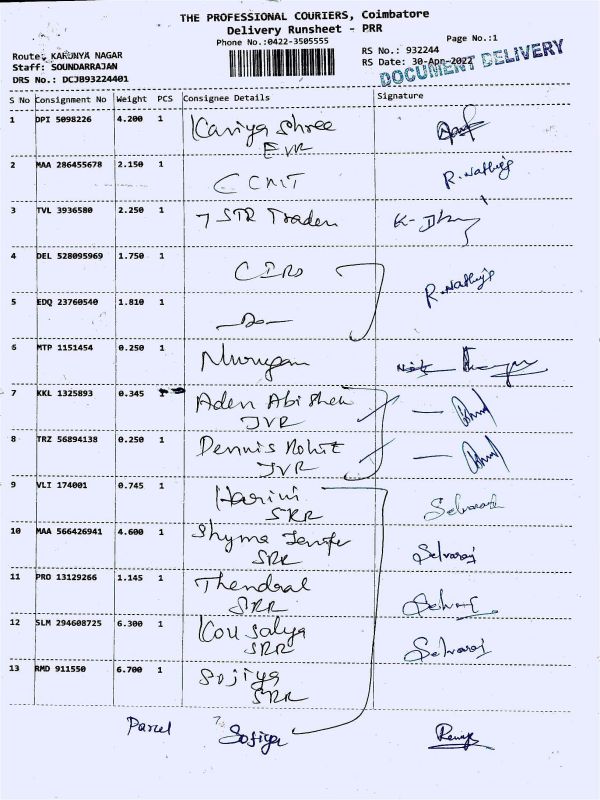 THE PROFESSIONAL COURIERS, Coimbatore
Delivery Runsheet - PRR
Phone No.:0422-3505555
Page No.:1
Route: KARUNYA NAGAR
RS No.: 932244
Staff: SOUNDARRAJAN
RS Date: 30-Apr-2022
DRS No.: DCJB93224401
DOCUMENT DELIVERY
S No Consignment No Weight PCS Consignee Details Signature
1 DPI 5098226 4.200 1 Kaviya Shree
EVR
2 MAA 286455678 2.150 1 CCMIT R. Nathiya
3 TVL 3936580 2.250 1 7 STR Traders
4 DEL 528095969 1.750 1 CIRO R. Nathiya
5 EDQ 23760540 1.810 1 —Do—
6 MTP 1151454 0.250 1 Murugan
7 KKL 1325893 0.345 1 Aden Abishek
JVR
8 TRZ 56894138 0.250 1 Dennis Rohit
JVR
9 VLI 174001 0.745 1 Harini Selvaraj
SRR
10 MAA 566426941 4.600 1 Shyma Jenifer Selvaraj
SRR
11 PRO 13129266 1.145 1 Thendral Selvaraj
SRR
12 SLM 294608725 6.300 1 Kousalya Selvaraj
SRR
13 RMD 911550 6.700 1 Sojiya
SRR
Parcel Sofiya